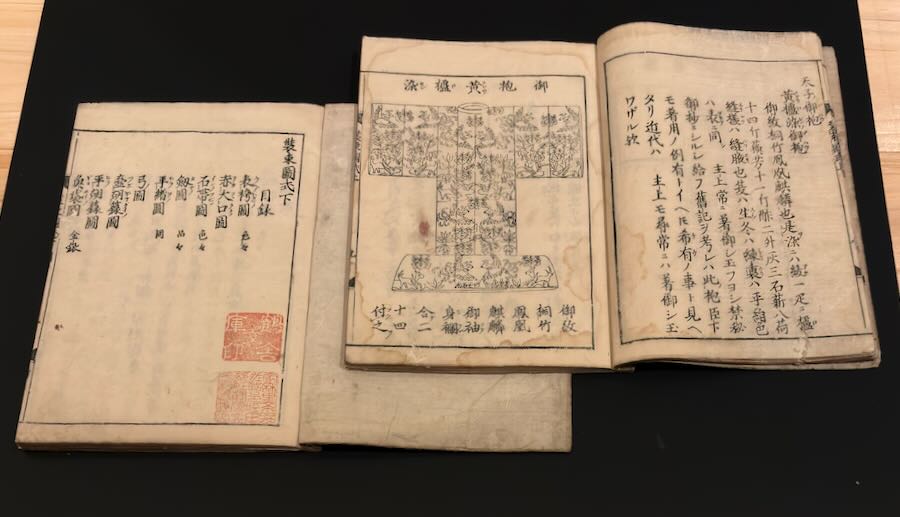 天子御袍
黄櫨染御袍
御紋桐竹鳳凰麒麟也是染ニハ綾一疋ニ櫨
十四斤蘇芳十一斤酢二升灰三石薪八荷
縫様ハ縫腋也夏ハ生冬ハ練裏ハ平絹色
ハ表ニ同シ 主上常ニ著御シ玉フヨシ禁秘
御抄ニシルシ給フ舊記ヲ考レハ此袍臣下
モ著用ノ例有トイヘ𪜈希有ノ事ト見ヘ
タリ近代ハ 主上モ尋常ニハ著御シ玉
ワザル欤
御袍黄櫨染
御紋
桐竹
鳳凰
麒麟
御袖
身襴
合二
十四
付之
裝束圖式下
目録
表袴圖 色々
赤大口圖
石帯圖 色々
劔圖 品々
平緒圖 同
弓圖
壺胡籙圖
平胡籙圖
魚袋圖 金銀